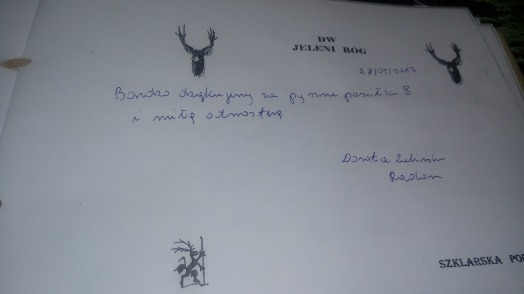 DW
JELENI RÓG
28/05/2017
Bardzo dziękujemy za pyszne posiłki
i miłą atmosferę
Dorota
Radom
SZKLARSKA POR